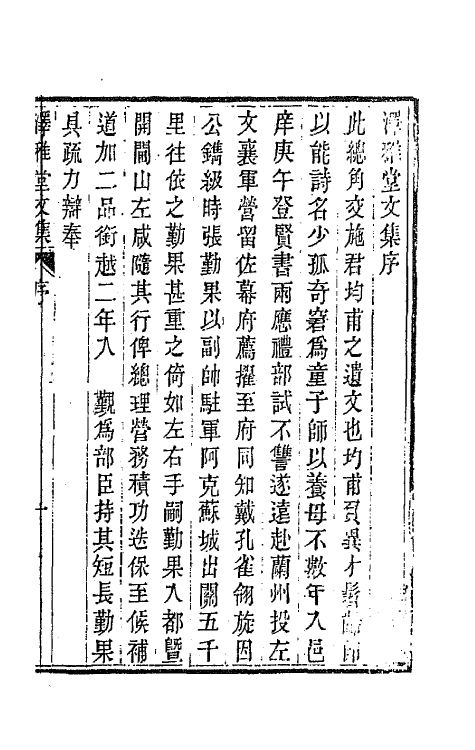 澤雅堂文集序
此總角交施君均甫之遺文也均甫負異才髫齡即
以能詩名少孤奇窘為童子師以養母不數年入邑
庠庚午登賢書兩應禮部試不讐遂遠赴蘭州投左
文襄軍營留佐幕府薦擢至府同知戴孔雀翎旋因
公鐫級時張勤果以副帥駐軍阿克蘇城出關五千
里往依之勤果甚重之倚如左右手嗣勤果入都暨
開閫山左咸隨其行俾總理營務積功迭保至候補
道加二品銜越二年入　覲為部臣持其短長勤果
具疏力辯奉
澤雅堂文集　序　一